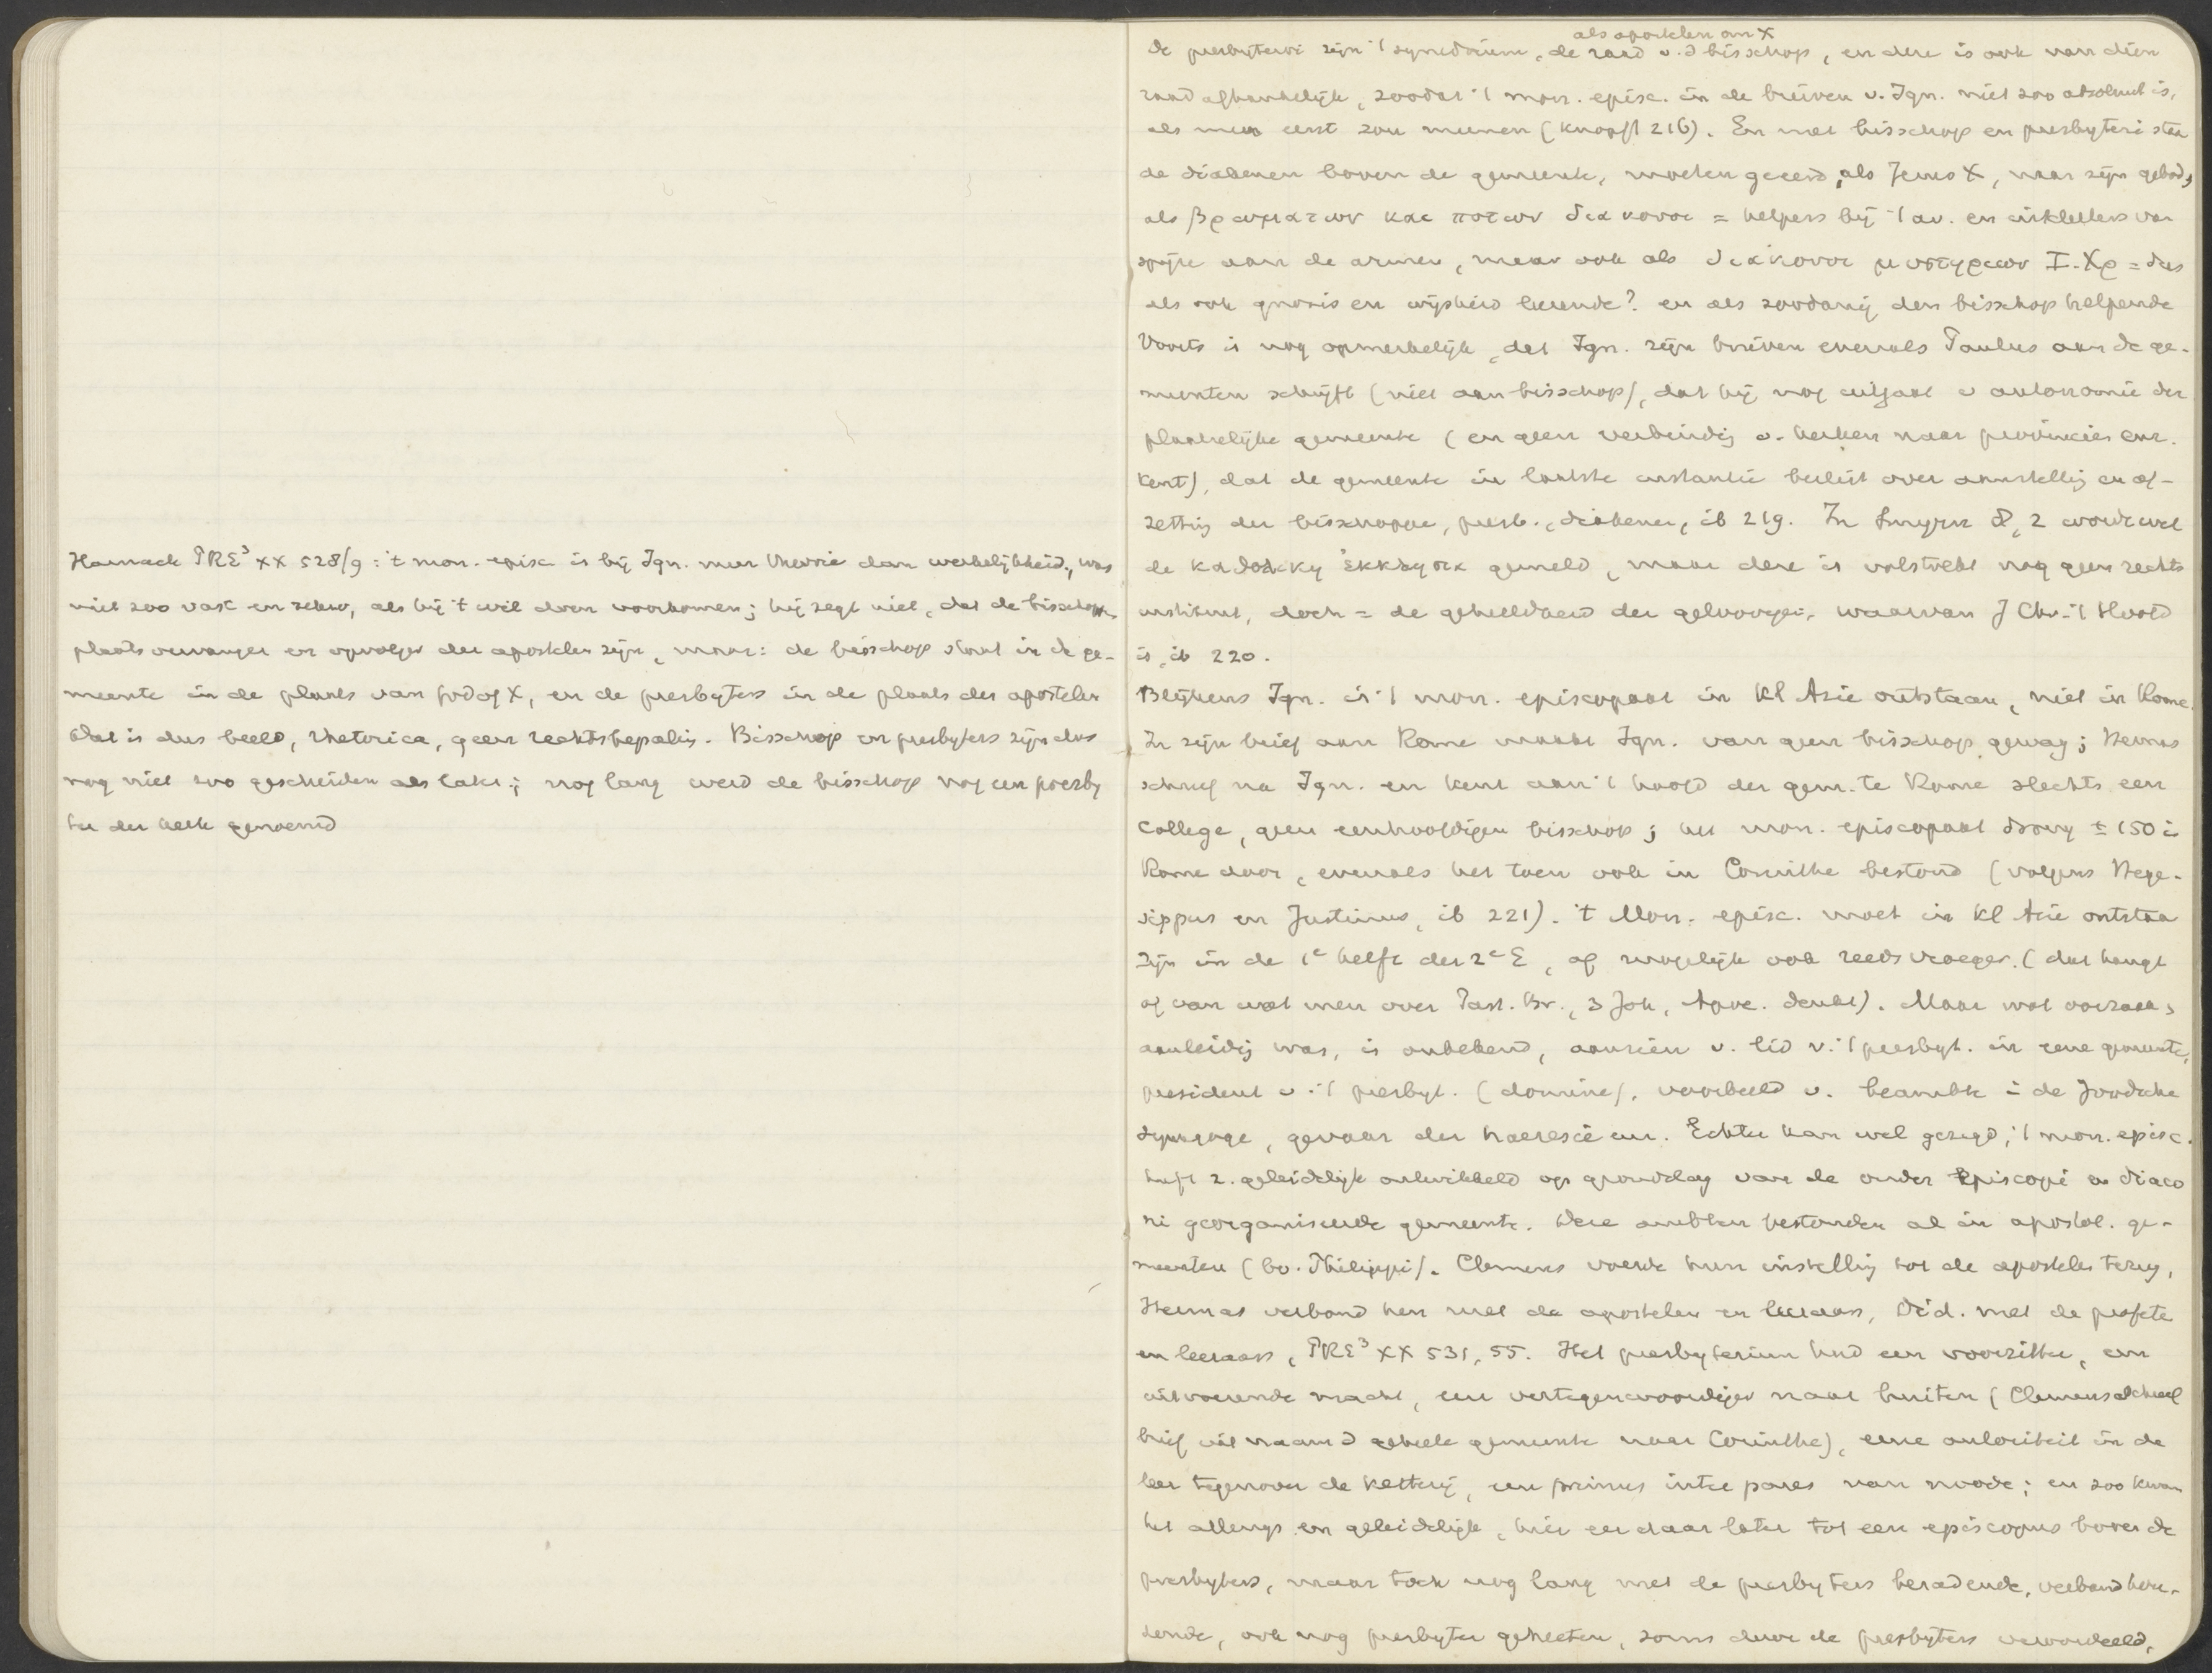 Harnack PRE³ XX 528/9: 't mon. episc. is bij Ign. meer theorie dan werkelijkheid, was
niet zoo vast en zeker, als hij 't wil doen voorkomen; hij zegt niet, dat de bisschoppen
plaatsvervanger en opvolger der apostelen zijn, maar: de bisschop staat in de ge-
meente in de plaats van God of X, en de presbyters in de plaats der apostelen
Dat is dus beeld, rhetorica, geen rechtsbepalig. Bisschop en presbyters zijn dus
nog niet zoo gescheiden als later; nog lang werd de bisschop nog een presby
ter der kerk genoemd
als apostelen om X
de presbyteroi zijn 't synedrium, de raad v. d bisschop, en deze is ook van dien
raad afhankelijk, zoodat 't mon. episc. in de brieven v. Ign. niet zoo absoluut is,
als men eerst zou meenen (Knopf 216). En met bisschop en presbyteri staa
de diakenen boven de gemeente, moeten geeerd, als Jezus X, naar zijn gebod,
als βρωματων και ποτων διακονοι = helpers bij 't av. en uitdeelers van
spijze aan de armen, maar ook als διακονοι μυστηριων Ι. Χρ = dus
als ook gnosis en wijsheid leerende? en als zoodanig den bisschop helpende
Voorts is nog opmerkelijk, dat Ign. zijn brieven evenals Paulus aan de ge-
meenten schrijft (niet aan bisschop), dat hij nog uitgaat v autonomie der
plaatselijke gemeente (en geen verbindig v. kerken naar provincies enz.
kent), dat de gemeente in laatste instantie beslist over aanstellig en af-
zettig der bisschoppe, presb., diakenen, ib 219. In Smyrn 8, 2 wordt wel
de καθολικη ἐκκλησια gemeld, maar deze is volstrekt nog geen rechts
instituut, doch = de geheelheid der geloovigen, waarvan J Chr. 't Hoofd
is, ib 220.
Blijkens Ign. is 't mon. episcopaat in Kl Azie ontstaan, niet in Rome.
In zijn brief aan Rome maakt Ign. van geen bisschop gewag; Hermas
schreef na Ign. en kent aan 't hoofd der gem. te Rome slechts een
college, geen eenhoofdigen bisschop; het mon. episcopaat drong ± 150 i
Rome door, evenals het toen ook in Corinthe bestond (volgens Hege-
sippus en Justinus, ib 221). 't Mon. episc. moet in Kl Azie ontstaa
zijn in de 1e helft der 2e E, of mogelijk ook reeds vroeger. (dat hangt
af van wat men over Past. Br., 3 Joh, Apoc. denkt). Maar wat oorzaak,
aanleidig was, is onbekend, aanzien v. lid v. 't presbyt. in eene gemeente,
president v. 't presbyt. (domine), voorbeeld v. beambte i de Joodsche
synagoge, gevaar der haeresie enz. Echter kan wel gezegd, 't mon. episc.
heeft z. geleidelijk ontwikkeld op grondslag van de onder Episcopi en diaco
ni georganiseerde gemeente. Deze ambten bestonden al in apostol. ge-
meenten (bv. Philippi). Clemens voerde hun instellig tot de apostelen terug,
Hermas verband hen met de apostelen en leeraars, Did. met de profete
en leeraars, PRE³ XX 531, 55. Het presbyterium had een voorzitter, een
uitvoerende macht, een vertegenwoordiger naar buiten (Clemens schreef
brief uit naam d geheele gemeente naar Corinthe), eene autoriteit in de
leer tegenover de ketterij, een primus inter pares van noode; en zoo kwam
het allengs en geleidelijk, hier eer daar later tot een episcopus boven de
presbyters, maar toch nog lang met de presbyters beradende, verband hou-
dende, ook nog presbyter geheeten, soms door de presbyters veroordeeld,